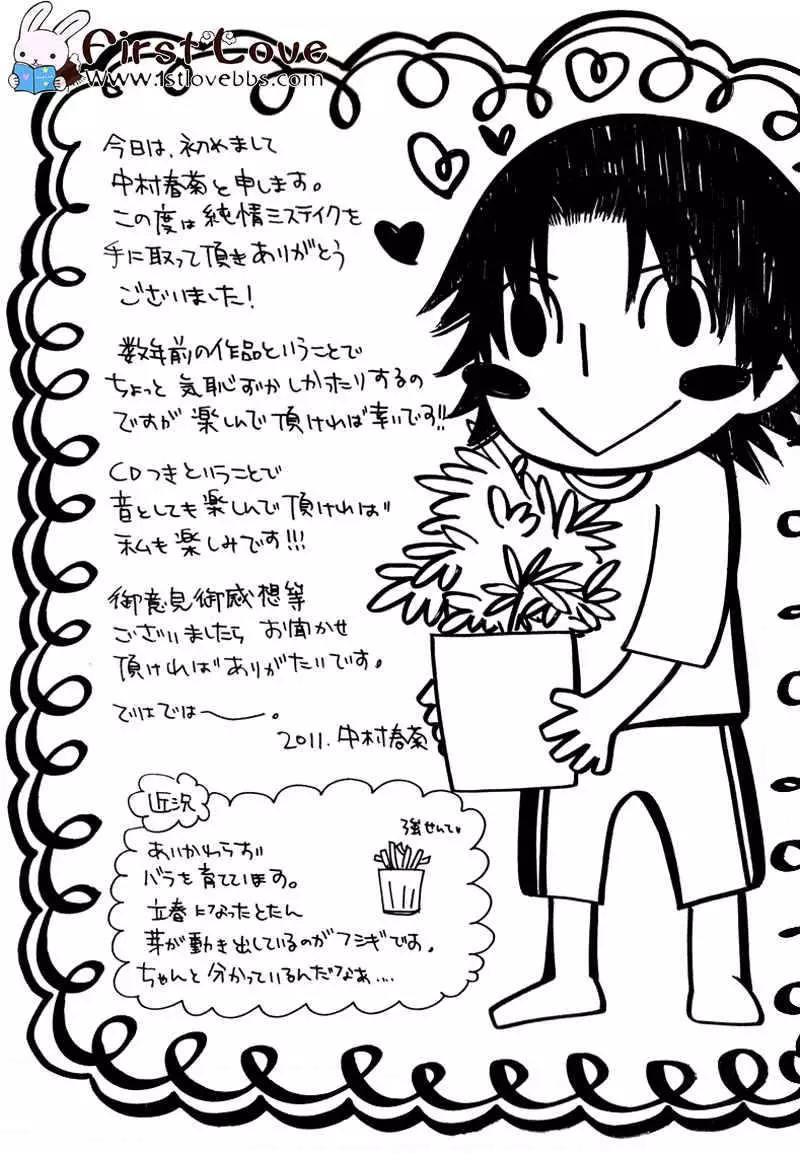 First Love
www.1stlovebbs.com
今日は、初めまして
中村春菊と申します。
この度は純情ミステイクを
手に取って頂きありがとう
ございました!
数年前の作品ということで
ちょっと気恥ずかしかったりするの
ですが楽しんで頂ければ幸いです!!
CDつきということで
音としても楽しんで頂ければ
私も楽しみです!!!
御意見御感想等
ございましたらお聞かせ
頂ければありがたいです。
ではでは〜。
2011.中村春菊
近況
強せんてい
あいかわらず
バラを育てています。
立春になったとたん
芽が動き出しているのがフシギです。
ちゃんと分かっているんだなぁ....